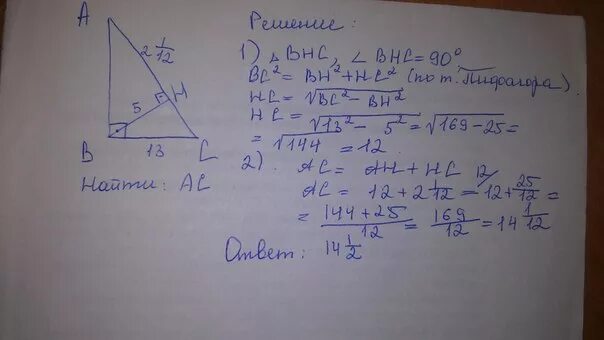 A
2 1/12
5
H
B
13
C
Найти: AC
Решение:
1) △BHC, ∠BHC = 90°
BC² = BH² + HC² (по т. Пифагора).
HC = √BC² − BH²
HC = √13² − 5² = √169 − 25 =
= √144 = 12.
2) AC = AH + HC
AC = 12 + 2 1/12 = 12/ 12 + 25/12 =
= 144 + 25/12 = 169/12 = 14 1/12
Ответ: 14 1/2